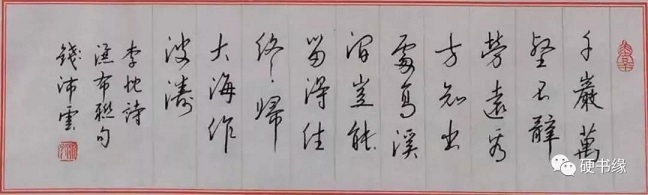 千巖萬
壑不辭
勞遠看
方知出
處高溪
澗豈能
留得住
終歸
大海作
波濤
李忱詩
瀑布聯句
錢沛雲
硬书缘